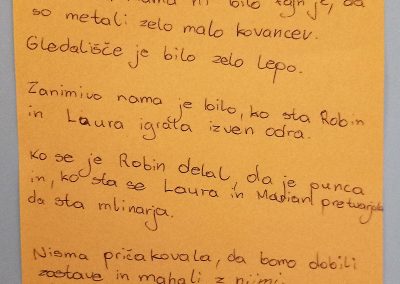 nama ni bilo fajn je, da
so metali zelo malo kovancev.
Gledališče je bilo zelo lepo.
Zanimivo nama je bilo, ko sta Robin
in Laura igrala izven odra.
Ko se je Robin delal, da je punca
in, ko sta se Laura in Marian pretvarjala
da sta mlinarja.
Nisma pričakovala, da bomo dobili
zastave in mahali z njimi